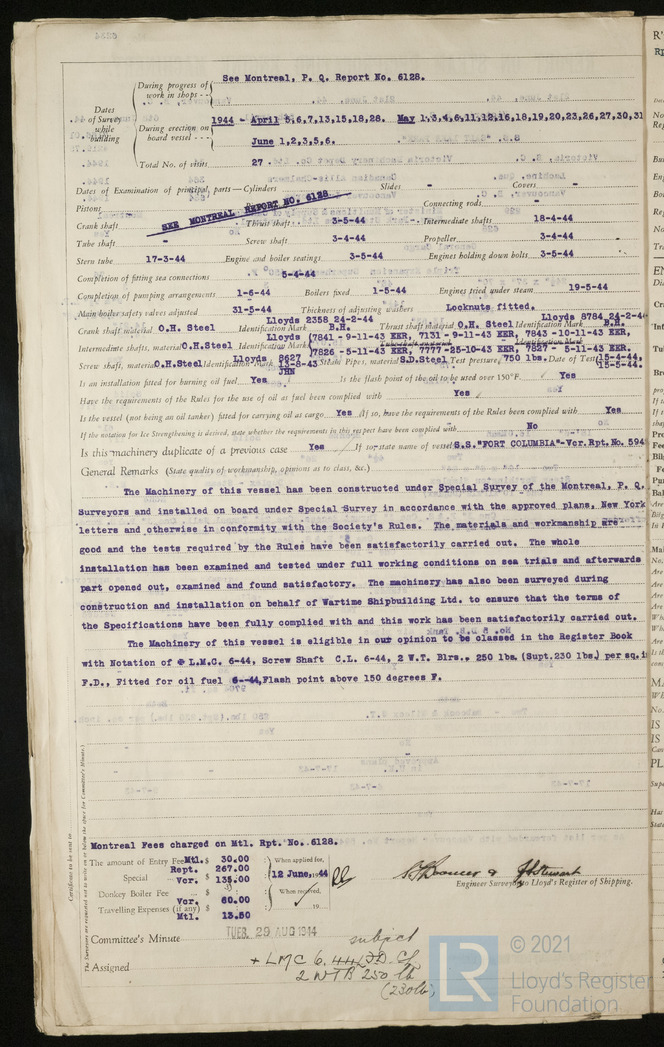 During progress of work in shops - - See Montreal, P. Q. Report No. 6128.
Dates of Survey while building
During erection on board vessel - - - 1944 - April 5,6,7,13,15,18,28. May 1,3,4,6,11,12,16,18,19,20,23,26,27,30,31
June 1,2,3,5,6.
Total No. of visits 27
Dates of Examination of principal parts—Cylinders Slides - Covers -
Pistons Connecting rods -
SEE MONTREAL REPORT NO. 6128
Crank shaft Thrust shaft 3-5-44 Intermediate shafts 18-4-44
Tube shaft - Screw shaft 3-4-44 Propeller 3-4-44
Stern tube 17-3-44 Engine and boiler seatings 3-5-44 Engines holding down bolts 3-5-44
Completion of fitting sea connections 5-4-44
Completion of pumping arrangements 1-6-44 Boilers fixed 1-5-44 Engines tried under steam 19-5-44
Main boiler safety valves adjusted 31-5-44 Thickness of adjusting washers Locknuts fitted.
Crank shaft material O.H. Steel Identification Mark Lloyds 2358 24-2-44 B.H. Thrust shaft material O.H. Steel Identification Mark Lloyds 8784 24-2-44 B.H.
Intermediate shafts, material O.H.Steel Identification Marks Lloyds (7841 - 9-11-43 EER, 7131 - 9-11-43 EER, 7843 -10-11-43 EER,
7826 - 5-11-43 EER, 7777-25-10-43 EER, 7827 - 5-11-43 EER.
Screw shaft, material O.H.Steel Identification Mark Lloyds 8627 13-8-43 JHN Steam Pipes, material S.D.Steel Test pressure 750 lbs. Date of Test 15-4-44. 15-5-44.
Is an installation fitted for burning oil fuel Yes Is the flash point of the oil to be used over 150°F. Yes
Have the requirements of the Rules for the use of oil as fuel been complied with Yes
Is the vessel (not being an oil tanker) fitted for carrying oil as cargo Yes If so, have the requirements of the Rules been complied with Yes
If the notation for Ice Strengthening is desired, state whether the requirements in this respect have been complied with No
Is this machinery duplicate of a previous case Yes If so, state name of vessel S.S."FORT COLUMBIA"-Vcr.Rpt.No. 594
General Remarks (State quality of workmanship, opinions as to class, &c.)
The Machinery of this vessel has been constructed under Special Survey of the Montreal, P. Q.
Surveyors and installed on board under Special Survey in accordance with the approved plans, New York
letters and otherwise in conformity with the Society's Rules. The materials and workmanship are
good and the tests required by the Rules have been satisfactorily carried out. The whole
installation has been examined and tested under full working conditions on sea trials and afterwards
part opened out, examined and found satisfactory. The machinery has also been surveyed during
construction and installation on behalf of Wartime Shipbuilding Ltd. to ensure that the terms of
the Specifications have been fully complied with and this work has been satisfactorily carried out.
The Machinery of this vessel is eligible in our opinion to be classed in the Register Book
with Notation of + L.M.C. 6-44, Screw Shaft C.L. 6-44, 2 W.T. Blrs., 250 lbs. (Supt.230 lbs.) per sq.i
F.D., Fitted for oil fuel 6-44, Flash point above 150 degrees F.
Montreal Fees charged on Mtl. Rpt. No. 6128.
The amount of Entry Fee Mtl. $ 30.00 When applied for,
Rept. 267.00
Special Vcr. $ 135.00 12 June, 1944
Donkey Boiler Fee $ When received,
Vcr. 60.00
Travelling Expenses (if any) $ 19
Mtl. 13.50
Engineer Surveyor to Lloyd's Register of Shipping.
Committee's Minute TUES. 29 AUG 1944
subject
Assigned + LMC 6.44 F.D. CL
2 WTB 250 lb
(230 lb)
Certificate to be sent to
The Surveyors are requested not to write on or below the space for Committee's Minute.
LR
© 2021
Lloyd's Register
Foundation